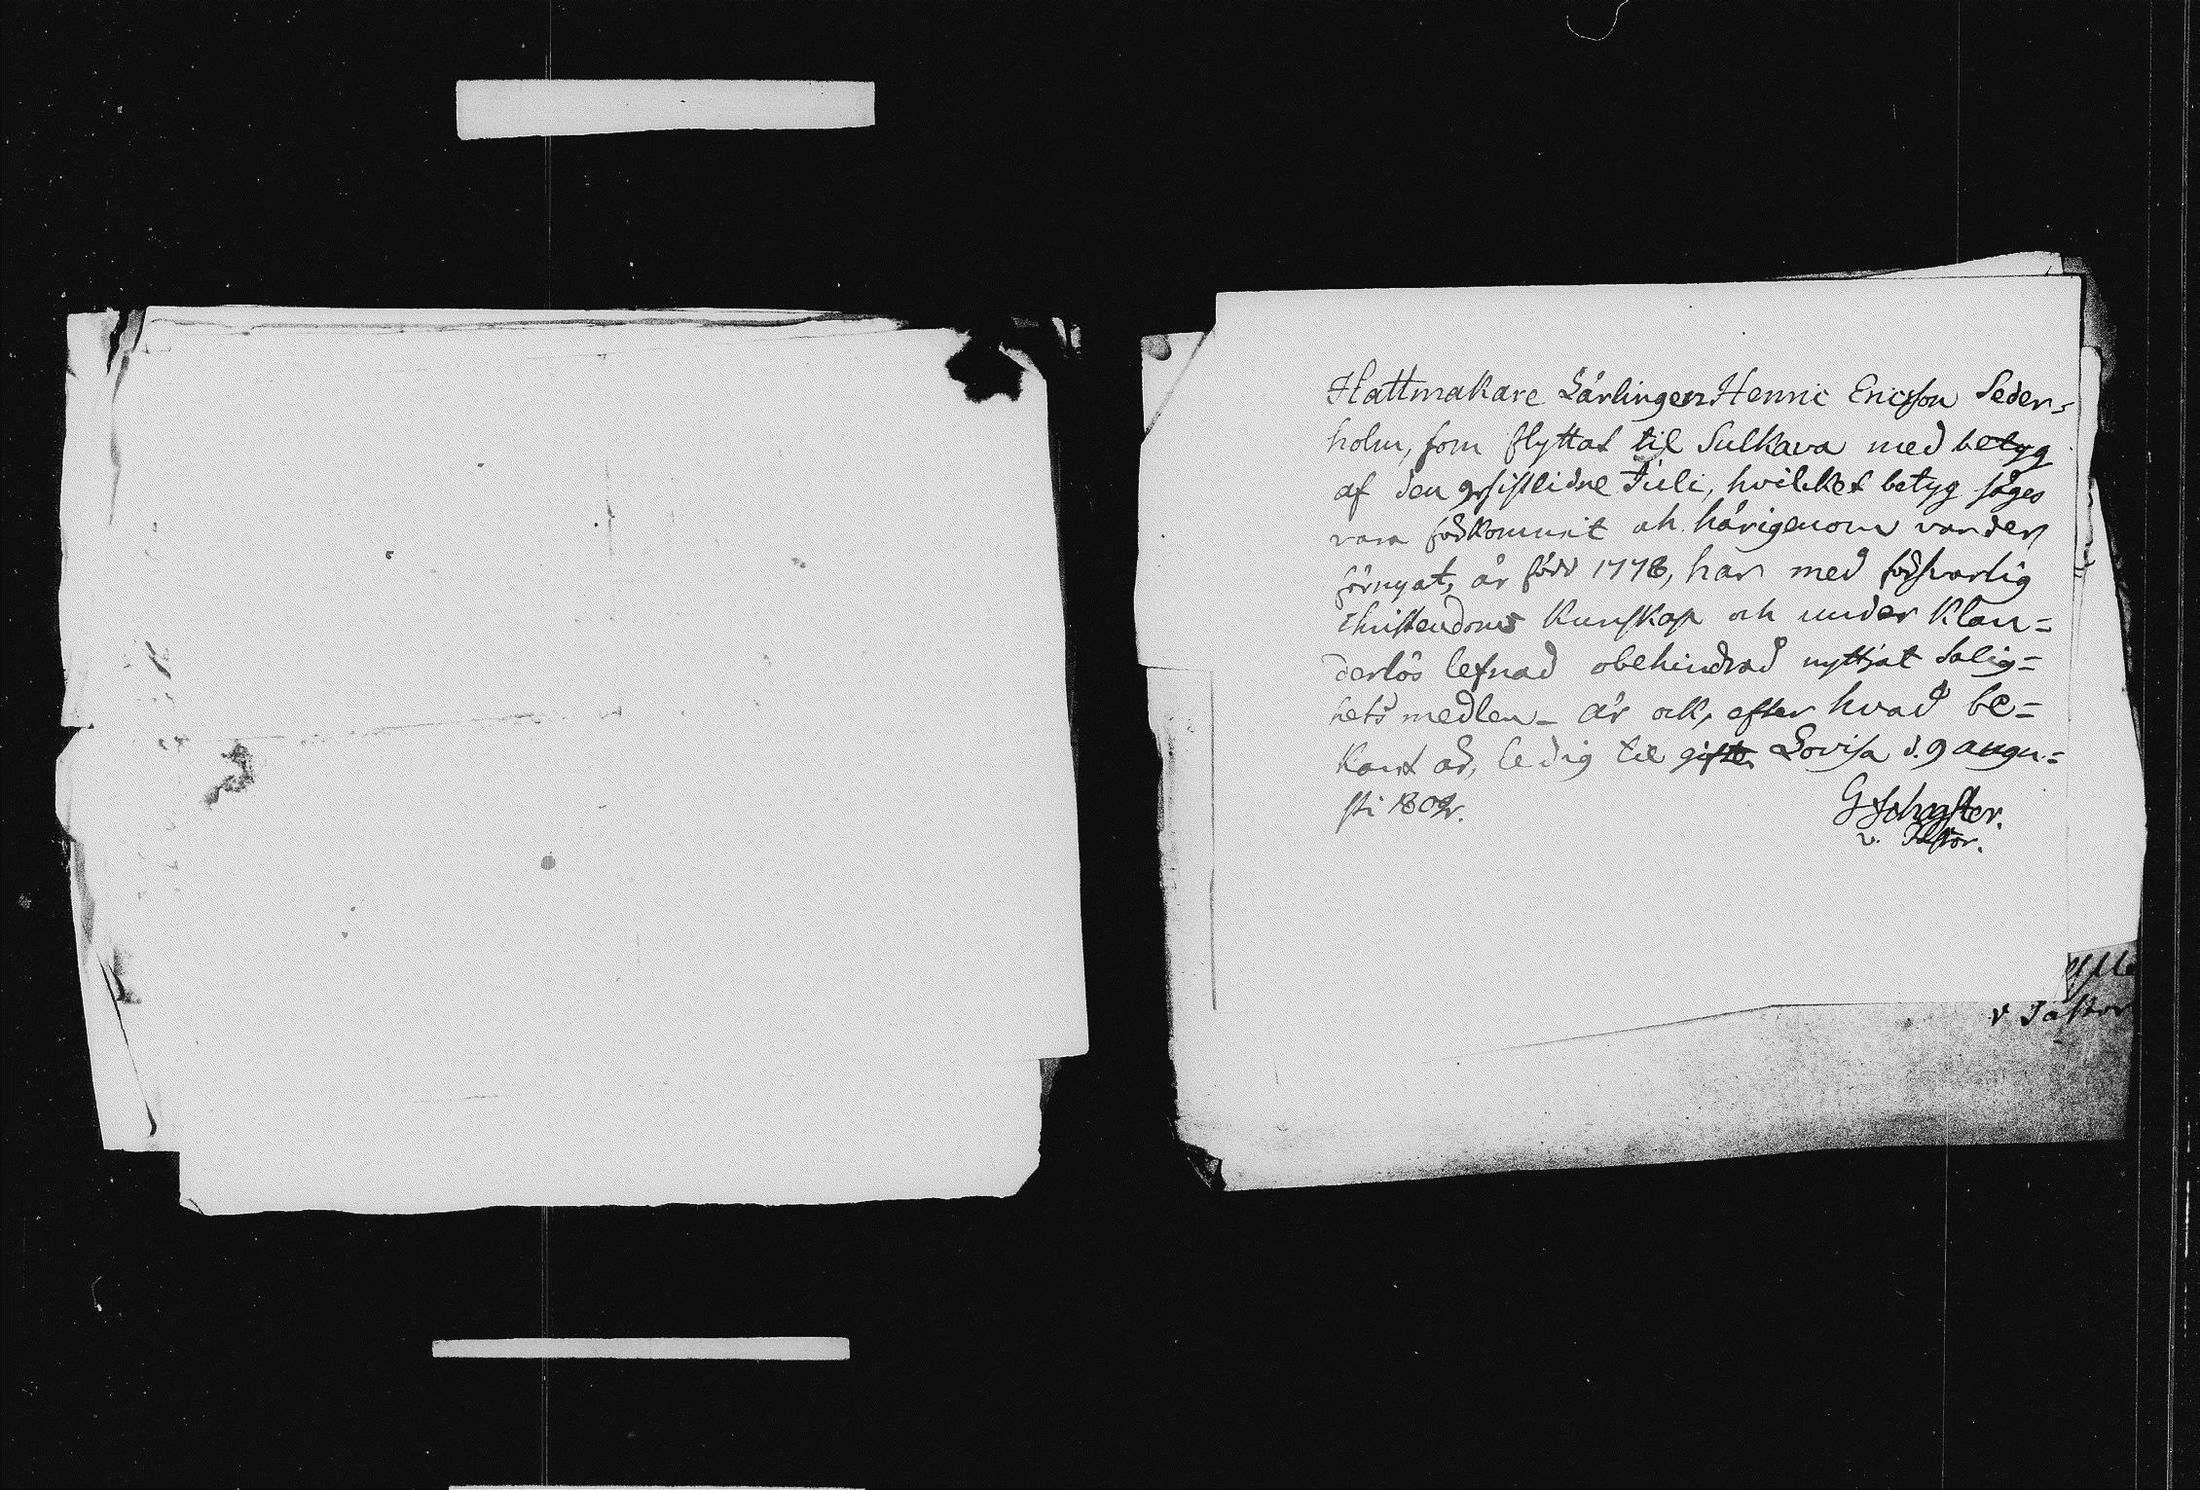 Hattmakare Lärlingen Henric Ericsson Seder=
holm, som flyttat til Sulkava med betyg
af den 9 sistlidne Juli, hvilket betyg säges
vara förkommit och härigenom varder
förnyat, är född 1778, har med försvarlig
Christendoms kunskap och under klan=
derlös lefnad obehindrad nyttjat Salig=
hets medlen – är ock, efter hvad be=
kant är, ledig til gifte, Lovisa d. 9 augu=
sti 1802.
G
v. Pastor.
v Pastor